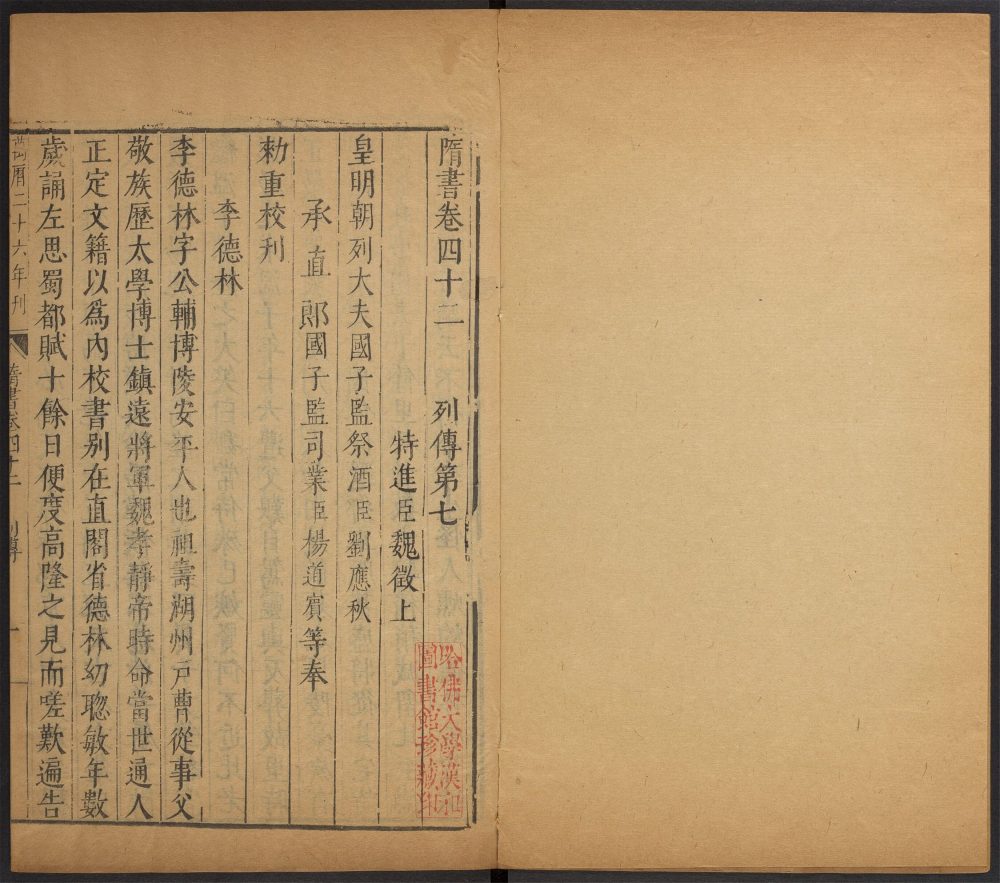 隋書卷四十二 列傳第七
特進臣魏徵上
皇明朝列大夫國子監祭酒臣劉應秋
承直郎國子監司業臣楊道賓等奉
勅重校刊
李德林
李德林字公輔博陵安平人也祖壽湖州戶曹從事父
敬族歷太學博士鎮遠將軍魏孝靜帝時命當世通人
正定文籍以爲內校書别在直閣省德林幼聰敏年數
歲誦左思蜀都賦十餘日便度高隆之見而嗟歎遍告
萬曆二十六年刊 隋書卷四十二 列傳 一
哈佛大學漢和
圖書館珍藏印